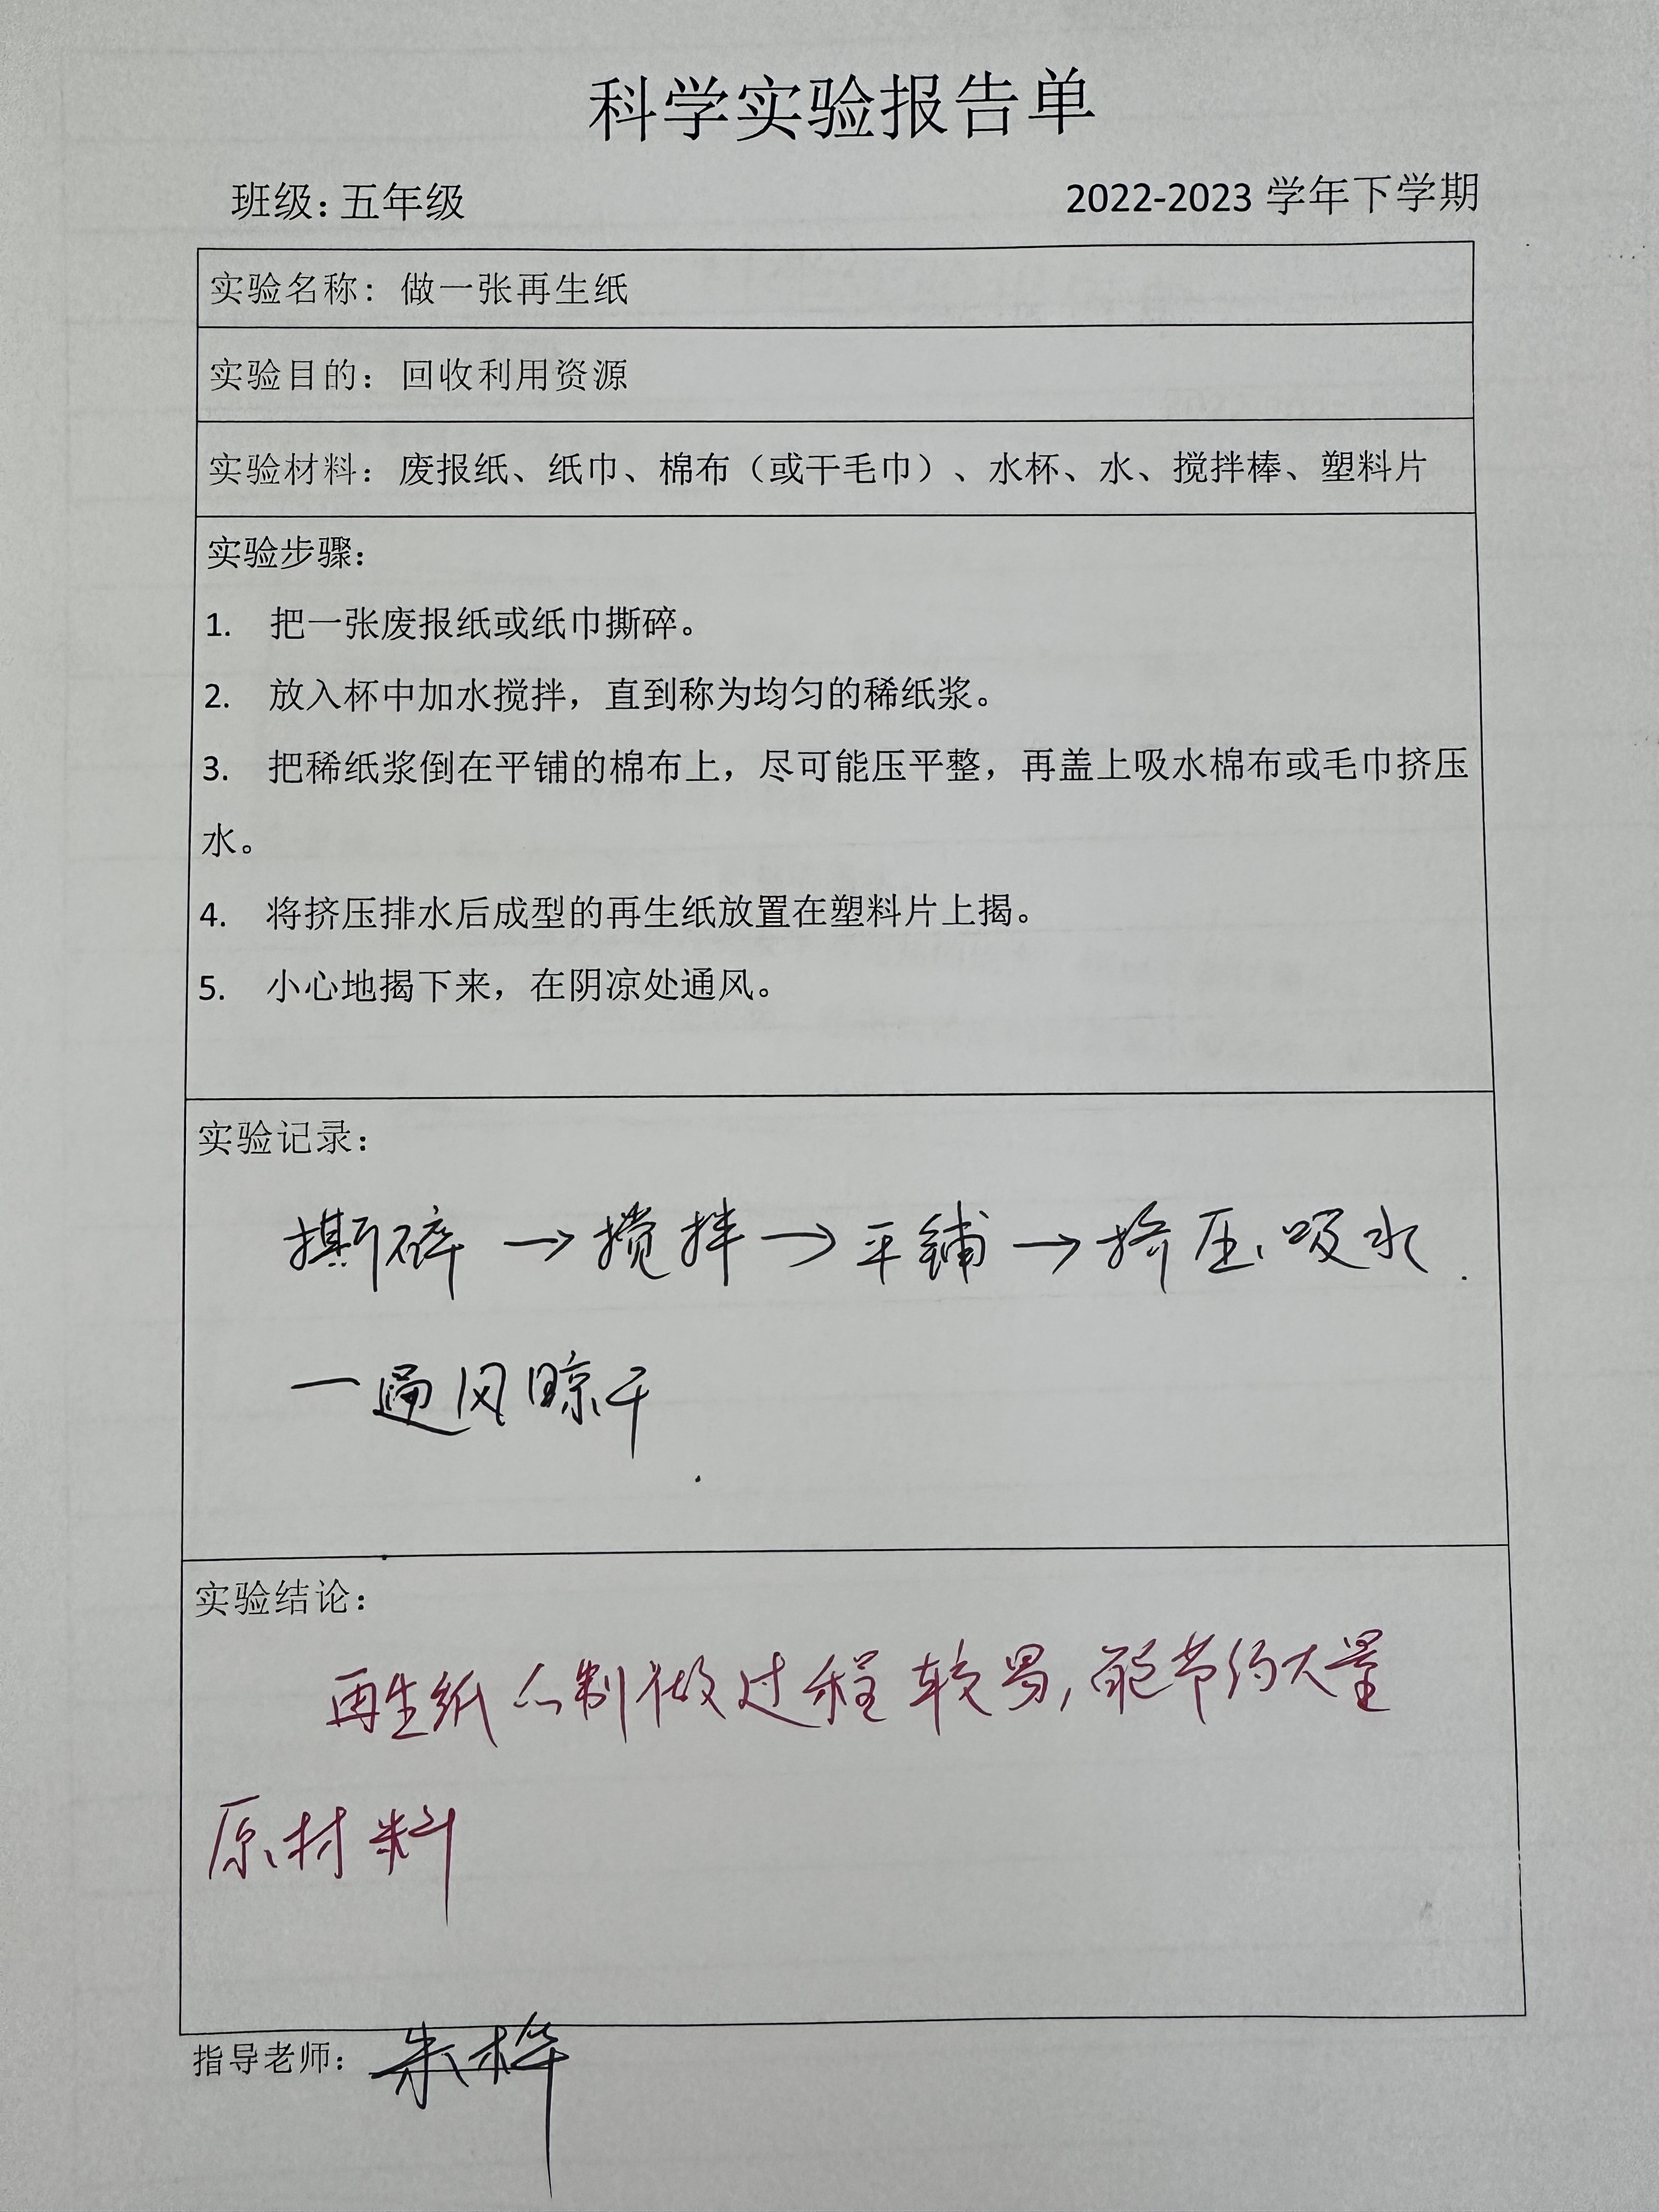 科学实验报告单
班级：五年级
2022-2023 学年下学期
实验名称：做一张再生纸
实验目的：回收利用资源
实验材料：废报纸、纸巾、棉布（或干毛巾）、水杯、水、搅拌棒、塑料片
实验步骤：
1. 把一张废报纸或纸巾撕碎。
2. 放入杯中加水搅拌，直到称为均匀的稀纸浆。
3. 把稀纸浆倒在平铺的棉布上，尽可能压平整，再盖上吸水棉布或毛巾挤压
水。
4. 将挤压排水后成型的再生纸放置在塑料片上揭。
5. 小心地揭下来，在阴凉处通风。
实验记录：
撕碎→搅拌→平铺→挤压吸水
一通风晾干
实验结论：
再生纸的制做过程较易，能节约大量
原材料
指导老师：朱桦